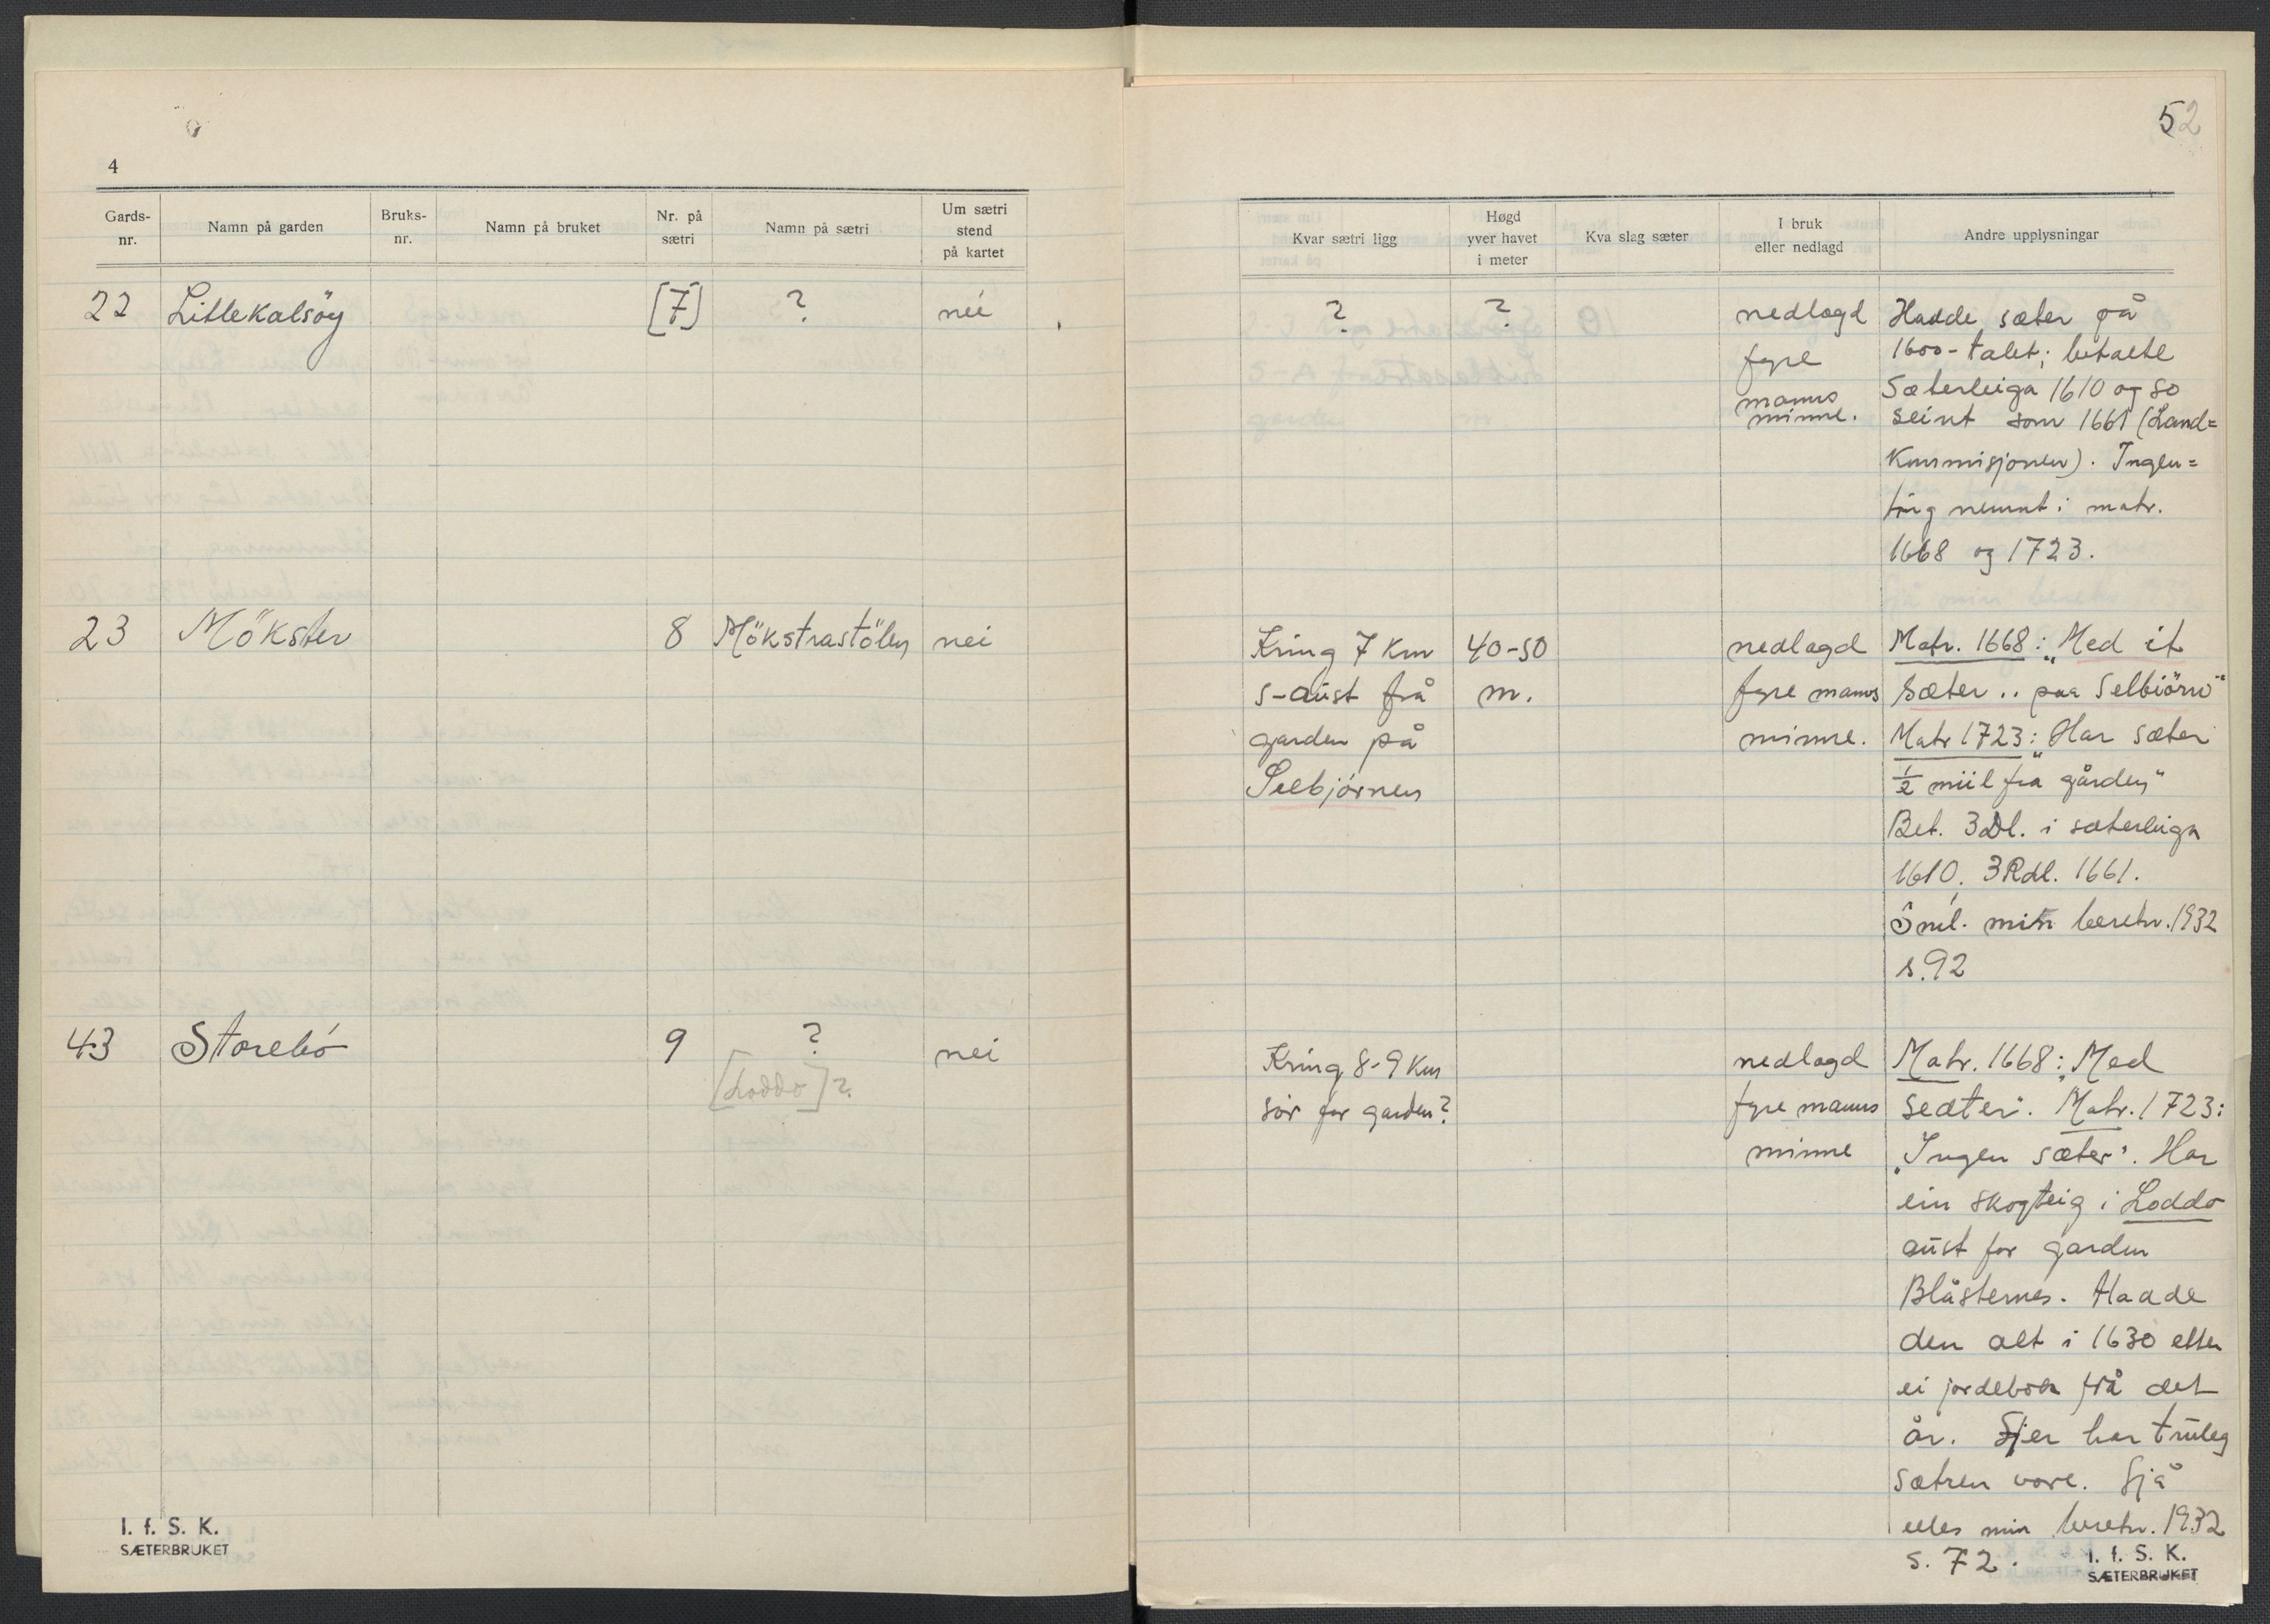 4
Gards-
nr.
Namn på garden
Bruks-
nr.
Namn på bruket
Nr. på
sætri
Namn på sætri
Um sætri
stend
på kartet
22 Litlekalsöy [7] ? nei
23 Mökster 8 Mökstrastölen nei
43 Storebö 9 ? nei
[Loddo]?
I. f. S. K.
SÆTERBRUKET
52
Kvar sætri ligg
Høgd
yver havet
i meter
Kva slag sæter
I bruk
eller nedlagd
Andre upplysningar
?
?
nedlagd
fyre
manns
minne.
Hadde sæter på
1600-talet; betalte
Sæterleiga 1610 og so
seint som 1661 (Land=
Kommisjonen). Ingen=
ting nemnt i matr.
1668 og 1723.
Kring 7 km
s-aust frå
garden på
Selbjörnen
40-50
m.
nedlagd
fyre manns
minne.
Matr. 1668: „Med it
Sæter .. paa Selbiörn"
Matr 1723: „Har sæter
½ miil fra gården"
Bet. 3 Dl. i sæterleiga
1610, 3 Rdl. 1661.
Sml. min beretn. 1932
s. 92
Kring 8-9 km
sör for garden?
nedlagd
fyre manns
minne
Matr. 1668: „Med
seæter". Matr. 1723:
„Ingen sæter". Har
ein skogteig i Loddo
aust for garden
Blåsternes. Hadde
den alt i 1630 etter
ei jordebok frå det
år. Her har truleg
Sætren vore. Sjå
elles min beretn. 1932
s. 72.
I. f. S. K.
SÆTERBRUKET